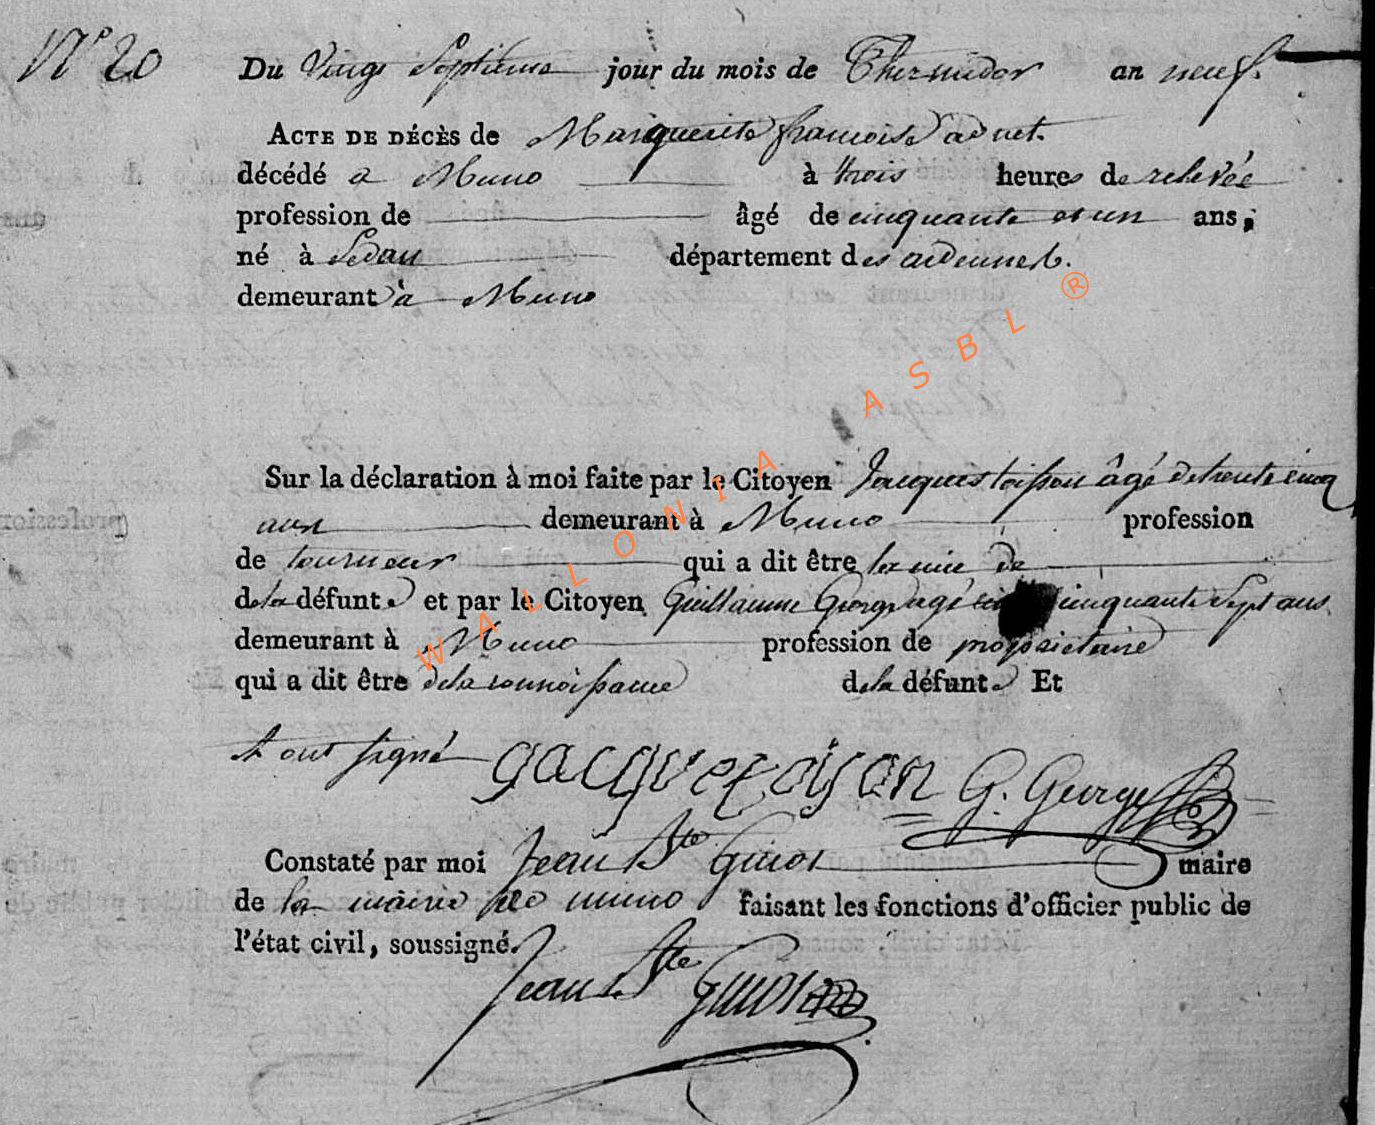 N° 20
Du Vingt Septieme jour du mois de Thermidor an neuf.
ACTE DE DÉCÈS de Marguerite francoise adnet.
décédé a Muno à trois heures de relevée
profession de âgé de cinquante et un ans,
né à Sedan département des ardennes.
demeurant à Muno
Sur la déclaration à moi faite par le Citoyen Jacques toisson âgé de trente cinq
ans demeurant à Muno profession
de tourneur qui a dit être
de la défunte et par le Citoyen Guillaume George agé cinquante Sept ans
demeurant à Muno profession de proprietaire
qui a dit être de la connoissance de la défunte Et
et ont signé Jacque toison G. George
Constaté par moi Jean Bte Guiot maire
de la mairie de muno faisant les fonctions d'officier public de
l'état civil, soussigné.
Jean Bte Guiot
WALLONIA ASBL ®